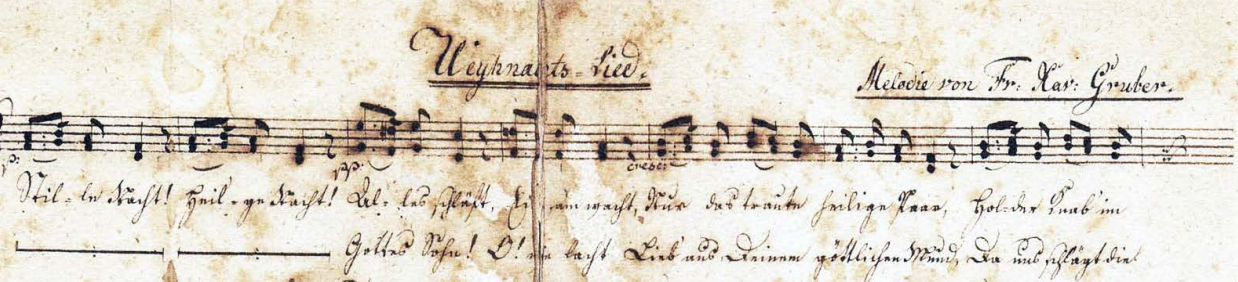 Weyhnachts-Lied.
Melodie von Fr: Xav: Gruber.
p: pp: cresc:
Stil-le Nacht! Heil-ge Nacht! Al-les schläft, Einsam wacht, Nur das traute heilige Paar, Hol-der Knab im
Gottes Sohn! O! wie lacht Lieb aus Deinem göttlichen Mund, Da uns schlägt die